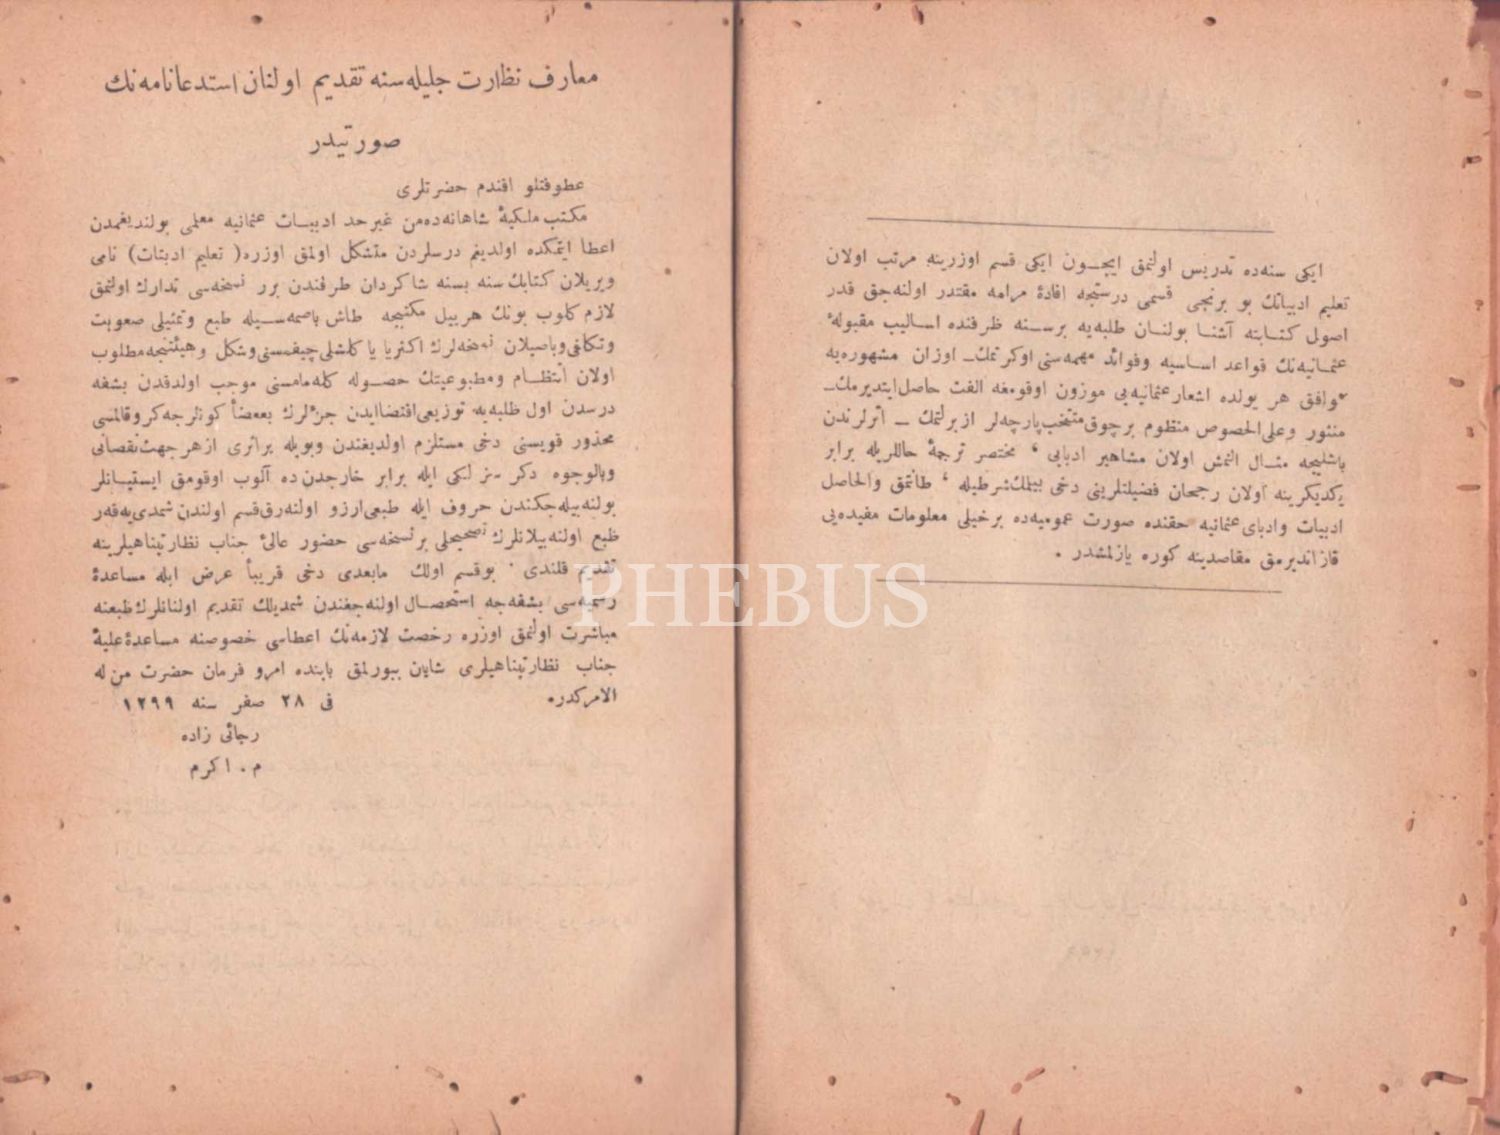 ایکی سنه‌ده تدریس اولنمق ایچـون ایکی قسم اوزرینه مرتب اولان
تعلیم ادبیاتك بو برنجی قسمی درستیجه افادۀ مرامه مقتدر اوله‌جق قدر
اصول کتـابته آشنـا بولنـان طلبه‌یه برسـنه ظرفنده اسـالیب مقبولۀ
عثمـانیه‌نك قواعد اساسیه وفوائد مهمه‌سنی اوکرتمك ـ اوزان مشهوره‌یه
موافق هر یولده اشعار عثمانیه‌یی موزون اوقومغه الفت حاصل ایتدیرمك ـ
منثور وعلی‌الخصوص منظوم برچوق منتخب پارچه‌لر ازبرلتمك ـ اثرلرندن
باشلیجه مثـال النمش اولان مشاهیر ادبایی ، مختصر ترجمۀ حاللریله برابر
یکدیکرینه اولان رجحان فضیلتلرینی دخی بیلمك شرطیله ، طانتمق والحاصل
ادبیات وادبای عثمانیه حقنده صورت عمومیه‌ده برخیلی معلومات مفیده‌یی
قازاندیرمق مقاصدینه کوره یازلمشدر .
معارف نظارت جلیله‌سنه تقدیم اولنان استدعانامه‌نك
صورتیدر
عطوفتلو افندم حضرتلری
مکتب ملکیۀ شاهانه‌ده من غیر حد ادبیـات عثمانیه معلمی بولندیغمدن
اعطا ایتمکده اولدیغم درسلردن متشکل اولمق اوزره ( تعلیم ادبیات ) نامی
ویریلان کتابك سنه بسنه شاکردان طرفندن برر نسخه‌سی تدارك اولنمق
لازم کلوب بونك هرییل مکتبجه طاش باصمه‌سـیله طبع وتمثیلی صعوبت
وتکلفی وباصیلان نسخه‌لرك اکثریا یا کلشلی چیقمسنی وشکل وهیئتنجه مطلوب
اولان انتظـام ومطبوعیتك حصـوله کله‌مامسنی موجب اولدقدن بشقه
درسدن اول طلبه‌یه توزیعی اقتضا ایدن جزءلرك بعضاً کونلرجه کرو قالمسی
محذور قویسنی دخی مستلزم اولدیغندن وبویله براثری ازهرجهت نقصانی
وبالوجوه دکرسزلکی ایله برابر خارجدن ده آلوب اوقومق ایستیـانلر
بولنه‌بیله‌جکندن حروف ایله طبعی ارزو اولنه‌رق قسم اولندن شمدی‌یه‌قدر
طبع اولنه‌بیلانلرك تصحیحلی برنسخه‌سی حضور عالئ جناب نظارتپناهیلرینه
تقدیم قلندی . بوقسم اولك مابعدی دخی قریباً عرض ایله مساعدۀ
رسمیه‌سی بشقه‌جه استحصـال اوله‌جغندن شمدیلك تقدیم اولنانلرك طبعنه
مباشرت اولنمق اوزره رخصت لازمه‌نك اعطاسی خصوصنه مساعدۀ علیۀ
جناب نظارتپناهیلری شایان بیورلمق بابنده امرو فرمان حضرت من له
الامرکدر.
فی ٢٨ صفر سنه ١٢٩٩
رجائی زاده
م . اکرم
PHEBUS